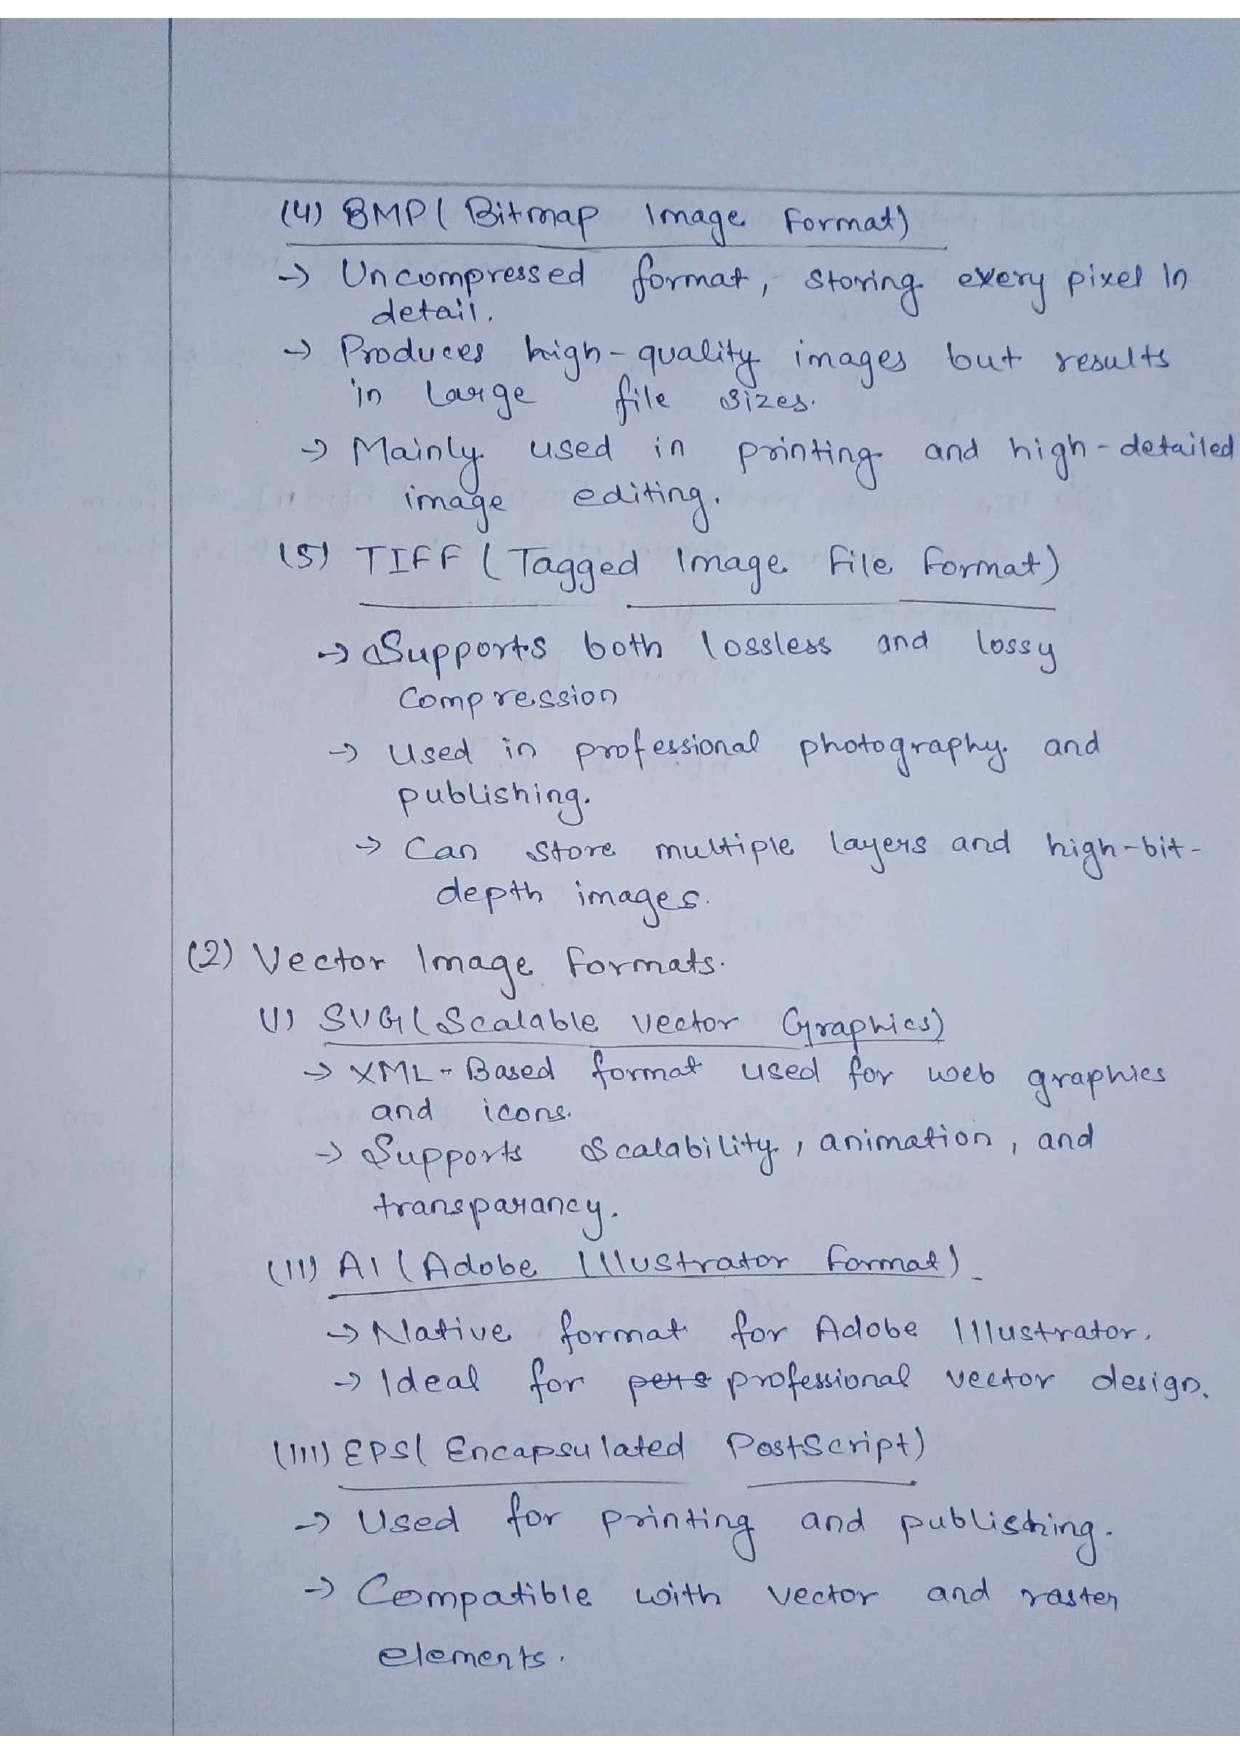 (4) BMP ( Bitmap Image Format)
→ Uncompressed format, storing every pixel in
detail.
→ Produces high-quality images but results
in large file sizes.
→ Mainly used in printing and high-detailed
image editing.
(5) TIFF ( Tagged Image File Format)
→ Supports both lossless and lossy
compression
→ Used in professional photography and
publishing.
→ Can store multiple layers and high-bit-
depth images.
(2) Vector Image Formats.
(I) SVG ( Scalable Vector Graphics)
→ XML-Based format used for web graphics
and icons.
→ Supports Scalability, animation, and
transparancy.
(II) AI ( Adobe Illustrator Format)
→ Native format for Adobe Illustrator.
→ Ideal for pers professional vector design.
(III) EPS ( Encapsulated PostScript)
→ Used for printing and publishing.
→ Compatible with vector and raster
elements.